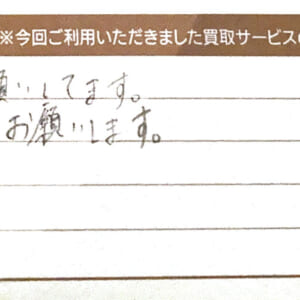 ※今回ご利用いただきました買取サービス
願いしてます。
お願いします。